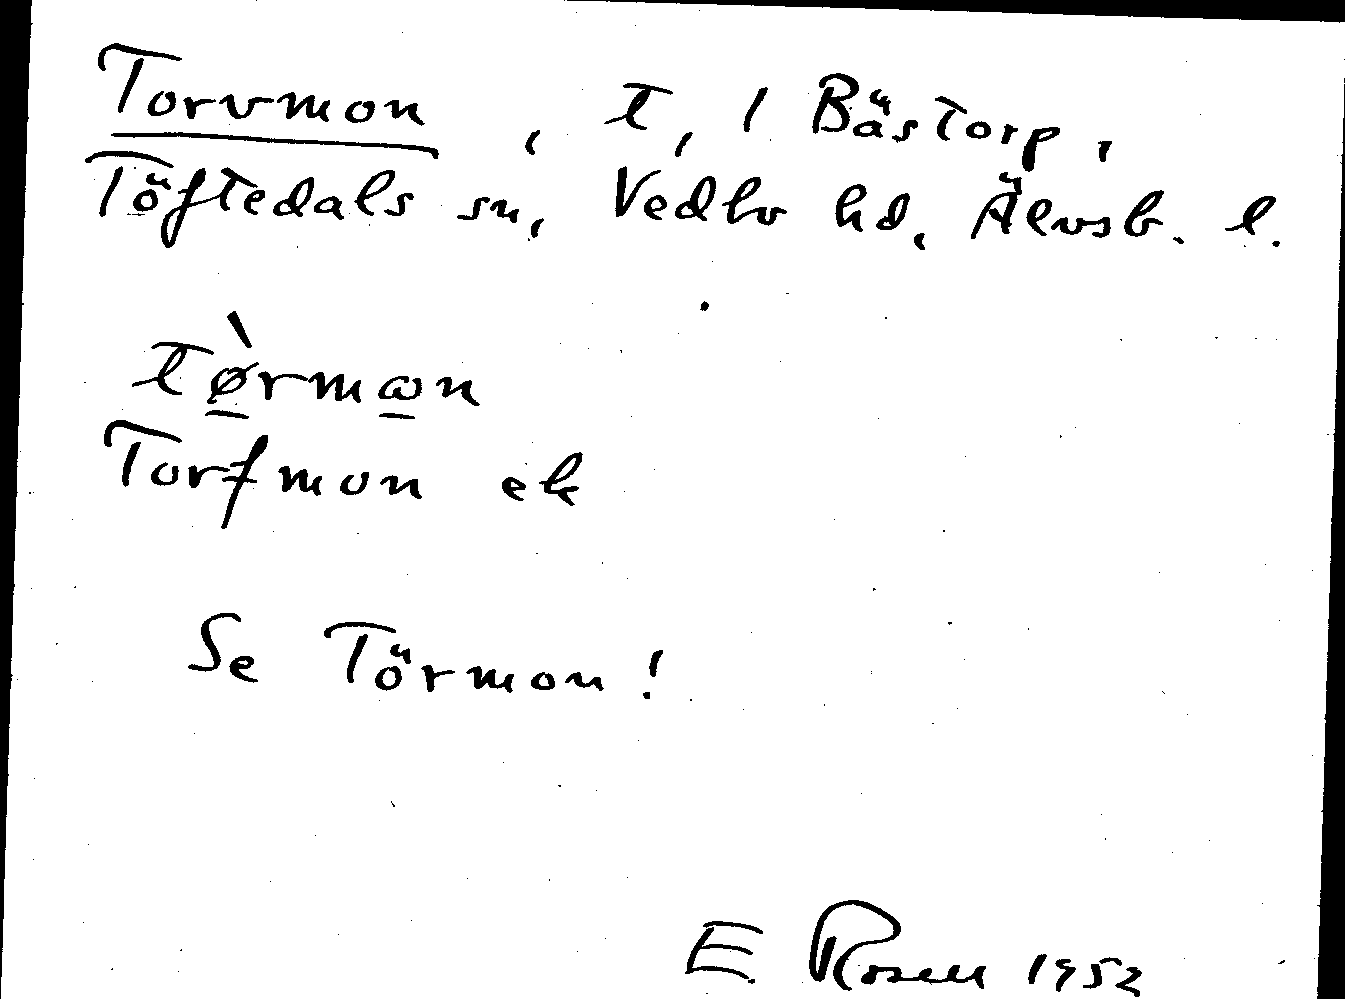 Torvmon, t, 1 Bästorp,
Töftedals sn, Vedbo hd, Älvsb. l.
tø̲̀rmɷ̲n
Torfmon ek
Se Törmon!
E. Rosell 1952